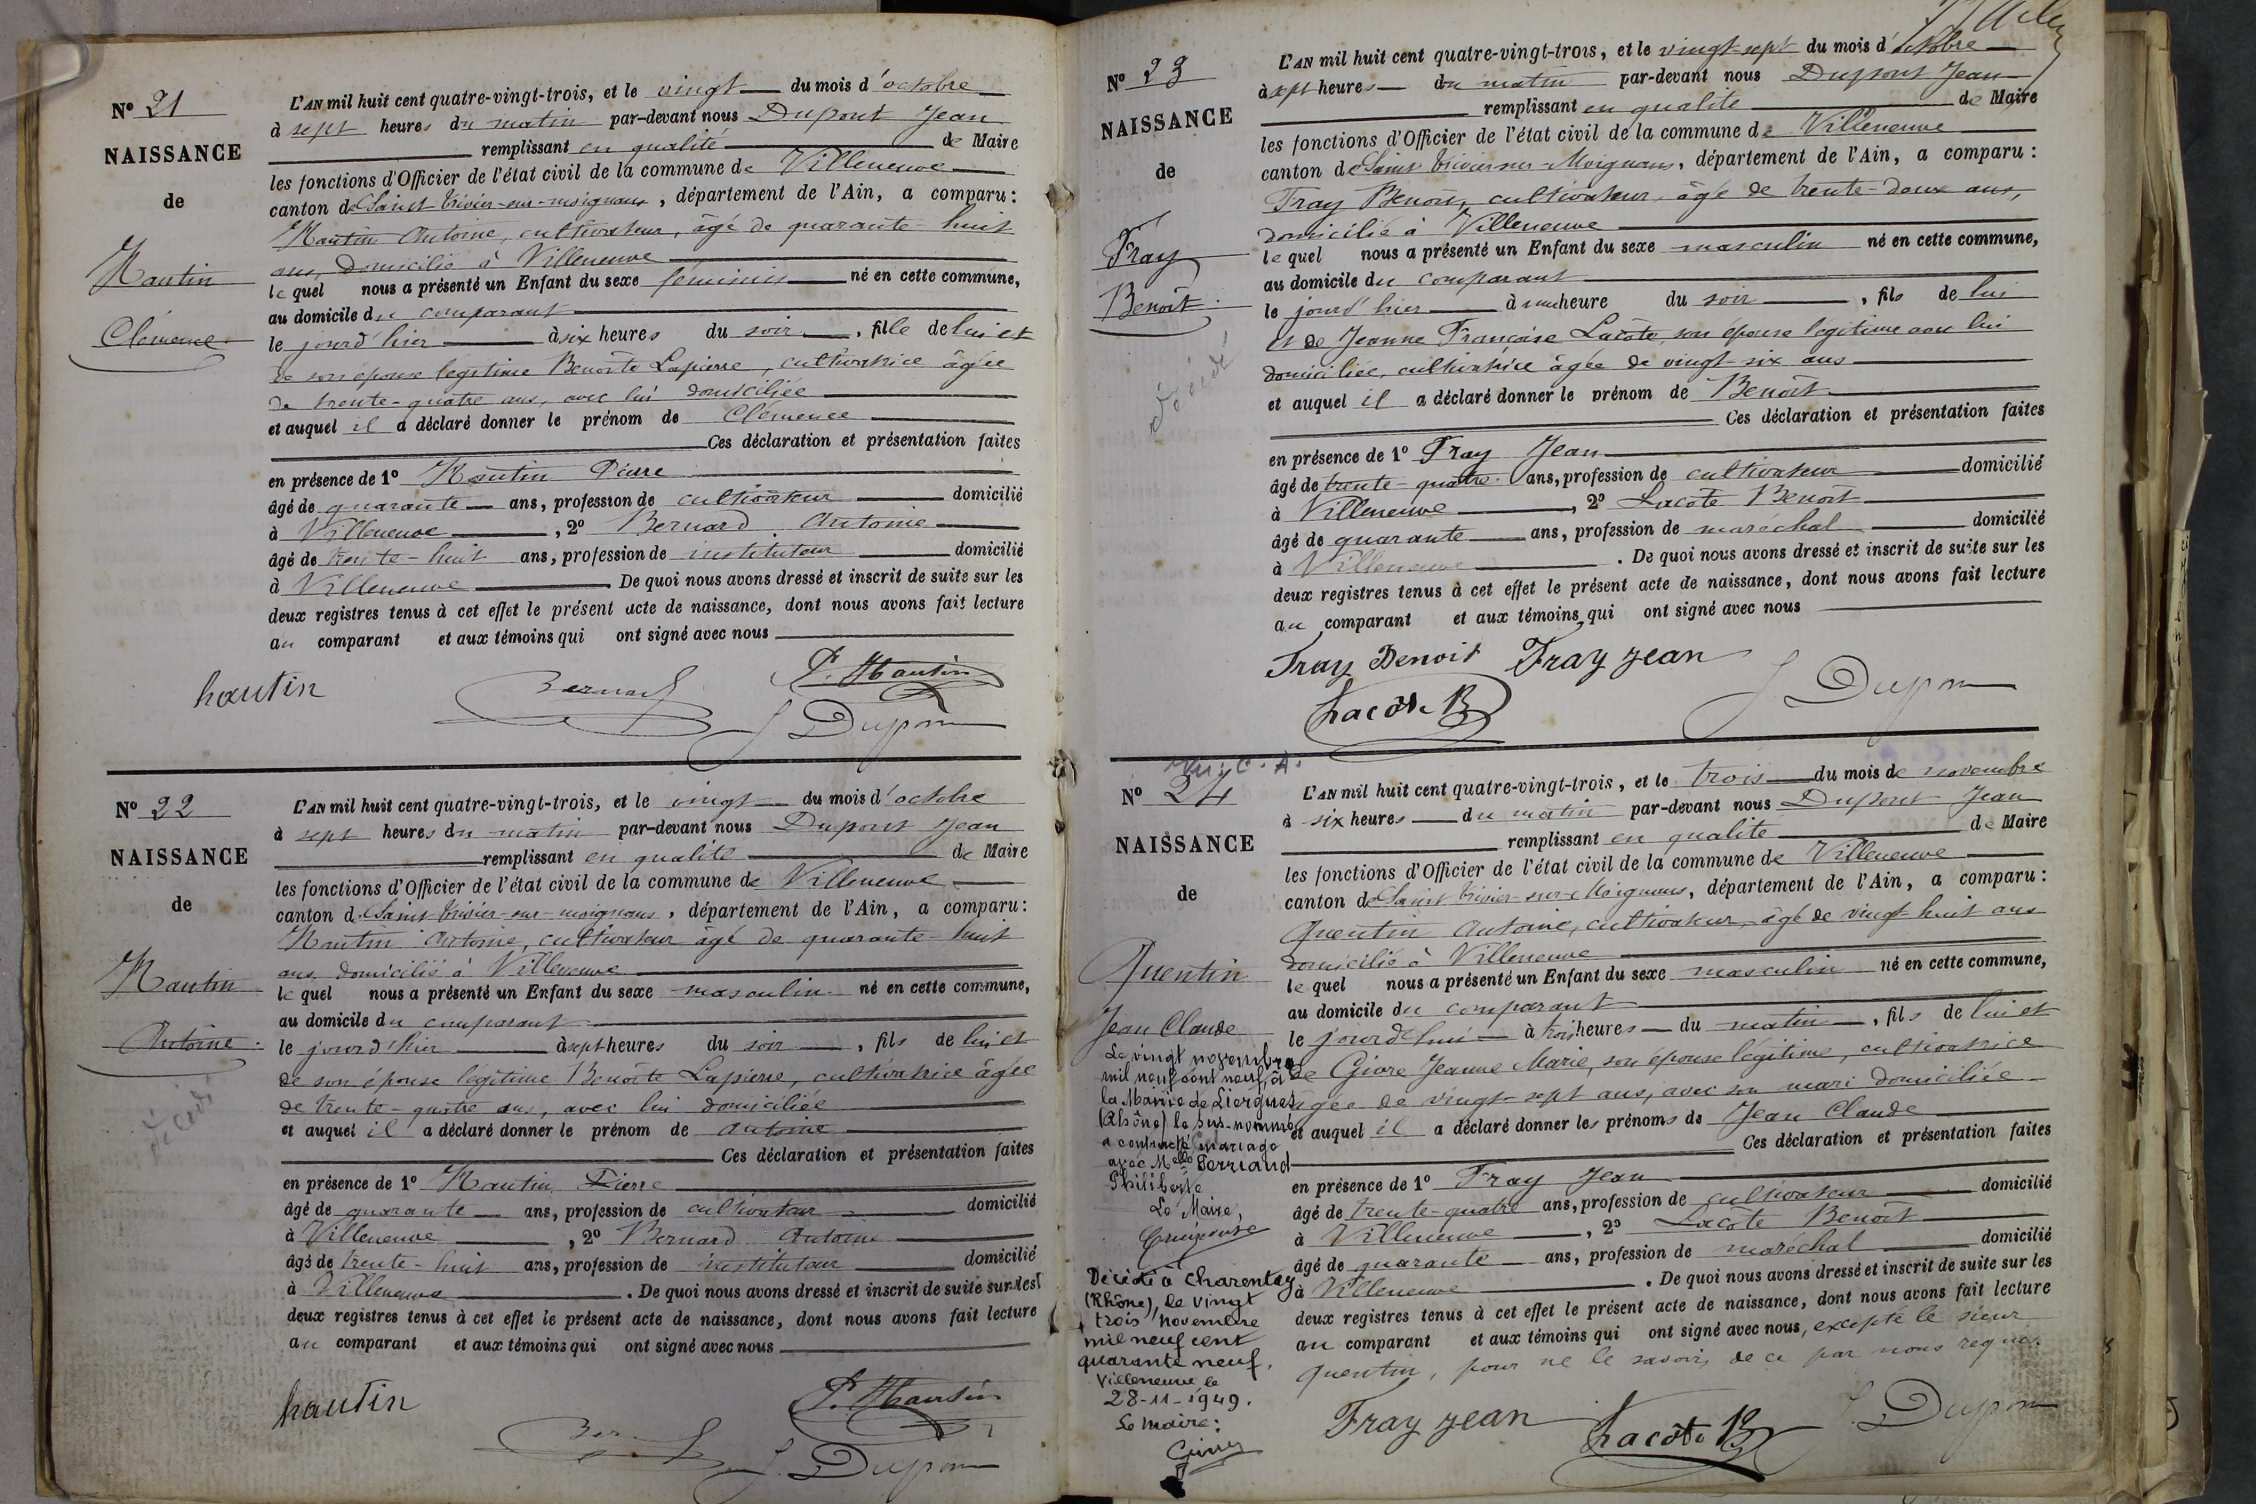 N° 21
NAISSANCE
de
Hautin
Clémence
L'AN mil huit cent quatre-vingt-trois, et le vingt du mois d'octobre
à sept heures du matin par-devant nous Dupont Jean
remplissant en qualité de Maire
les fonctions d'Officier de l'état civil de la commune de Villeneuve
canton de Saint-trivier-sur-moignans, département de l'Ain, a comparu :
Hautin Antoine, cultivateur, âgé de quarante-huit
ans, domicilié à Villeneuve
lequel nous a présenté un Enfant du sexe féminin né en cette commune,
au domicile du comparant
le jourd'hier à six heures du soir, fille de lui et
de son épouse légitime Benoîte Lapierre, cultivatrice âgée
de trente-quatre ans, avec lui domiciliée
et auquel il a déclaré donner le prénom de Clémence
Ces déclaration et présentation faites
en présence de 1° Hautin Pierre
âgé de quarante ans, profession de cultivateur domicilié
à Villeneuve, 2° Bernard Antoine
âgé de trente-huit ans, profession de instituteur domicilié
à Villeneuve. De quoi nous avons dressé et inscrit de suite sur les
deux registres tenus à cet effet le présent acte de naissance, dont nous avons fait lecture
au comparant et aux témoins qui ont signé avec nous
hautin Bernard P. Hautin
J Dupont
N° 22
NAISSANCE
de
Hautin
Antoine
décédé
L'AN mil huit cent quatre-vingt-trois, et le vingt du mois d'octobre
à sept heures du matin par-devant nous Dupont Jean
remplissant en qualité de Maire
les fonctions d'Officier de l'état civil de la commune de Villeneuve
canton de Saint-trivier-sur-moignans, département de l'Ain, a comparu :
Hautin Antoine, cultivateur âgé de quarante-huit
ans, domicilié à Villeneuve
lequel nous a présenté un Enfant du sexe masculin né en cette commune,
au domicile du comparant
le jourd'hier à sept heures du soir, fils de lui et
de son épouse légitime Benoîte Lapierre, cultivatrice âgée
de trente-quatre ans, avec lui domiciliée
et auquel il a déclaré donner le prénom de Antoine
Ces déclaration et présentation faites
en présence de 1° Hautin Pierre
âgé de quarante ans, profession de cultivateur domicilié
à Villeneuve, 2° Bernard Antoine
âgé de trente-huit ans, profession de instituteur domicilié
à Villeneuve. De quoi nous avons dressé et inscrit de suite sur les
deux registres tenus à cet effet le présent acte de naissance, dont nous avons fait lecture
au comparant et aux témoins qui ont signé avec nous
hautin P. Hautin
J. Dupont
N° 23
NAISSANCE
de
Fray
Benoît
décédé
L'AN mil huit cent quatre-vingt-trois, et le vingt-sept du mois d'octobre
à sept heures du matin par-devant nous Dupont Jean
remplissant en qualité de Maire
les fonctions d'Officier de l'état civil de la commune de Villeneuve
canton de Saint-trivier-sur-Moignans, département de l'Ain, a comparu :
Fray Benoît, cultivateur, âgé de trente-deux ans,
domicilié à Villeneuve
lequel nous a présenté un Enfant du sexe masculin né en cette commune,
au domicile du comparant
le jourd'hier à une heure du soir, fils de lui
et de Jeanne Françoise Lacôte, son épouse légitime avec lui
domiciliée, cultivatrice âgée de vingt-six ans
et auquel il a déclaré donner le prénom de Benoît
Ces déclaration et présentation faites
en présence de 1° Fray Jean
âgé de trente-quatre ans, profession de cultivateur domicilié
à Villeneuve, 2° Lacôte Benoît
âgé de quarante ans, profession de maréchal domicilié
à Villeneuve. De quoi nous avons dressé et inscrit de suite sur les
deux registres tenus à cet effet le présent acte de naissance, dont nous avons fait lecture
au comparant et aux témoins qui ont signé avec nous
Fray Benoit Fray jean
Lacôte B J Dupont
N° 24
NAISSANCE
de
Quentin
Jean Claude
Le vingt novembre
mil neuf cent neuf, à
la Mairie de Liergues
(Rhône) le sus-nommé
a contracté mariage
avec Melle Perriand
Philiberte
Le Maire,
Décédé à Charentay
(Rhône), le vingt
trois novembre
mil neuf cent
quarante neuf.
Villeneuve le
28-11-1949.
Le maire :
L'AN mil huit cent quatre-vingt-trois, et le trois du mois de novembre
à six heures du matin par-devant nous Dupont Jean
remplissant en qualité de Maire
les fonctions d'Officier de l'état civil de la commune de Villeneuve
canton de Saint-trivier-sur-Moignans, département de l'Ain, a comparu :
Quentin Antoine, cultivateur, âgé de vingt-huit ans
domicilié à Villeneuve
lequel nous a présenté un Enfant du sexe masculin né en cette commune,
au domicile du comparant
le jourd'hui à trois heures du matin, fils de lui et
de Givre Jeanne Marie, son épouse légitime, cultivatrice
âgée de vingt-sept ans, avec son mari domiciliée
et auquel il a déclaré donner les prénoms de Jean Claude
Ces déclaration et présentation faites
en présence de 1° Fray Jean
âgé de trente-quatre ans, profession de cultivateur domicilié
à Villeneuve, 2° Lacôte Benoît
âgé de quarante ans, profession de maréchal domicilié
à Villeneuve. De quoi nous avons dressé et inscrit de suite sur les
deux registres tenus à cet effet le présent acte de naissance, dont nous avons fait lecture
au comparant et aux témoins qui ont signé avec nous, excepté le sieur
Quentin, pour ne le savoir, de ce par nous requis.
Fray jean Lacôte B J. Dupont